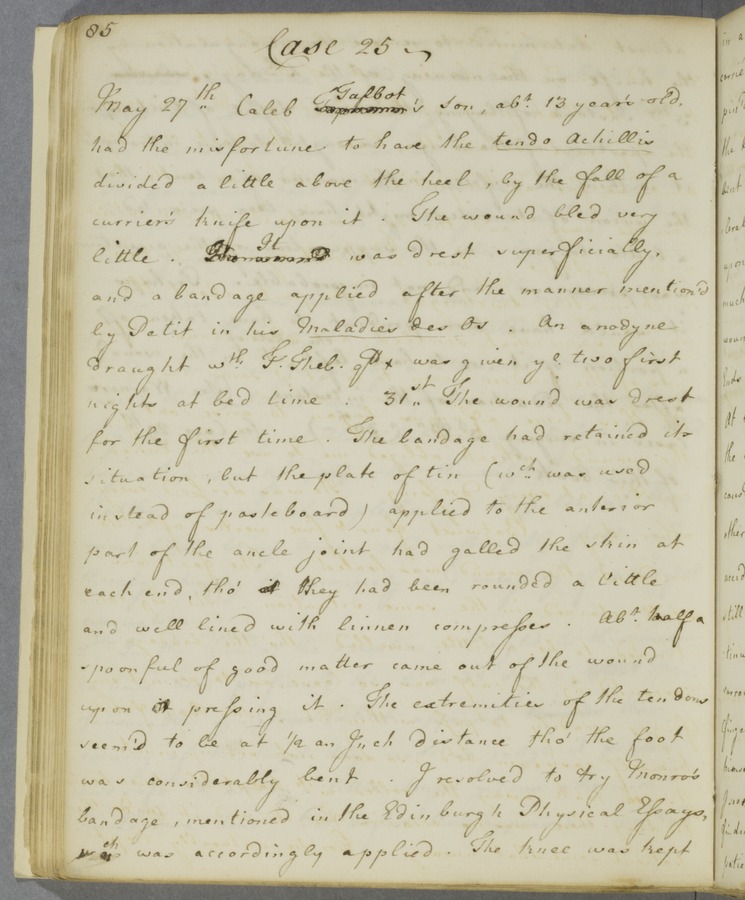 85
Case 25
May 27th Caleb Talbot's son, abt. 13 years old,
had the misfortune to have the tendo Achillis
divided a little above the heel, by the fall of a
currier's knife upon it. The wound bled very
little. It was drest superficially,
and a bandage applied after the manner mention'd
by Petit in his Maladies des Os. An anodyne
draught wth was given ye. two first
nights at bed time. 31st The wound was drest
for the first time. The bandage had retained its
situation, but the plate of tin (wch was used
instead of pasteboard) applied to the anterior
part of the ancle joint had galled the skin at
each end, tho' they had been rounded a little
and well lined with linnen compresses. Abt. half a
spoonful of good matter came out of the wound
upon pressing it. The extremities of the tendons
seem'd to be at 1/2 an Inch distance tho' the foot
was considerably bent. I resolved to try Monro's
bandage, mentioned in the Edinburgh Physical Essays,
wch was accordingly applied. The knee was kept